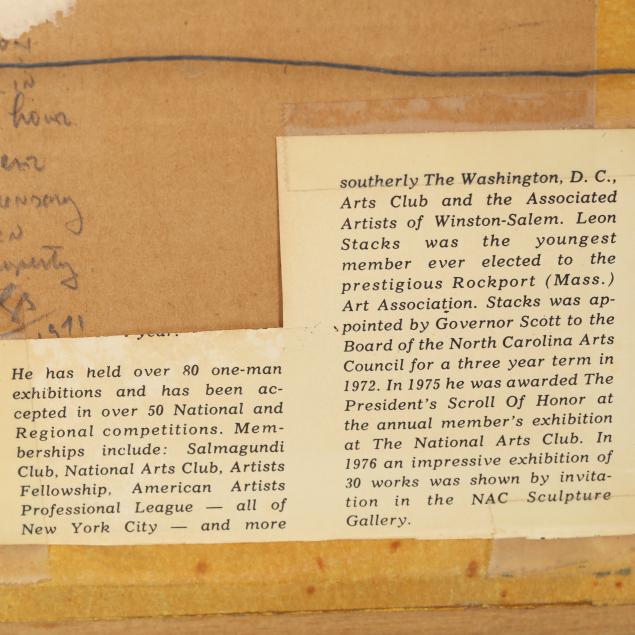 in
hour
property
1971
year.
He has held over 80 one-man
exhibitions and has been ac-
cepted in over 50 National and
Regional competitions. Mem-
berships include: Salmagundi
Club, National Arts Club, Artists
Fellowship, American Artists
Professional League — all of
New York City — and more
southerly The Washington, D. C.,
Arts Club and the Associated
Artists of Winston-Salem. Leon
Stacks was the youngest
member ever elected to the
prestigious Rockport (Mass.)
Art Association. Stacks was ap-
pointed by Governor Scott to the
Board of the North Carolina Arts
Council for a three year term in
1972. In 1975 he was awarded The
President's Scroll Of Honor at
the annual member's exhibition
at The National Arts Club. In
1976 an impressive exhibition of
30 works was shown by invita-
tion in the NAC Sculpture
Gallery.